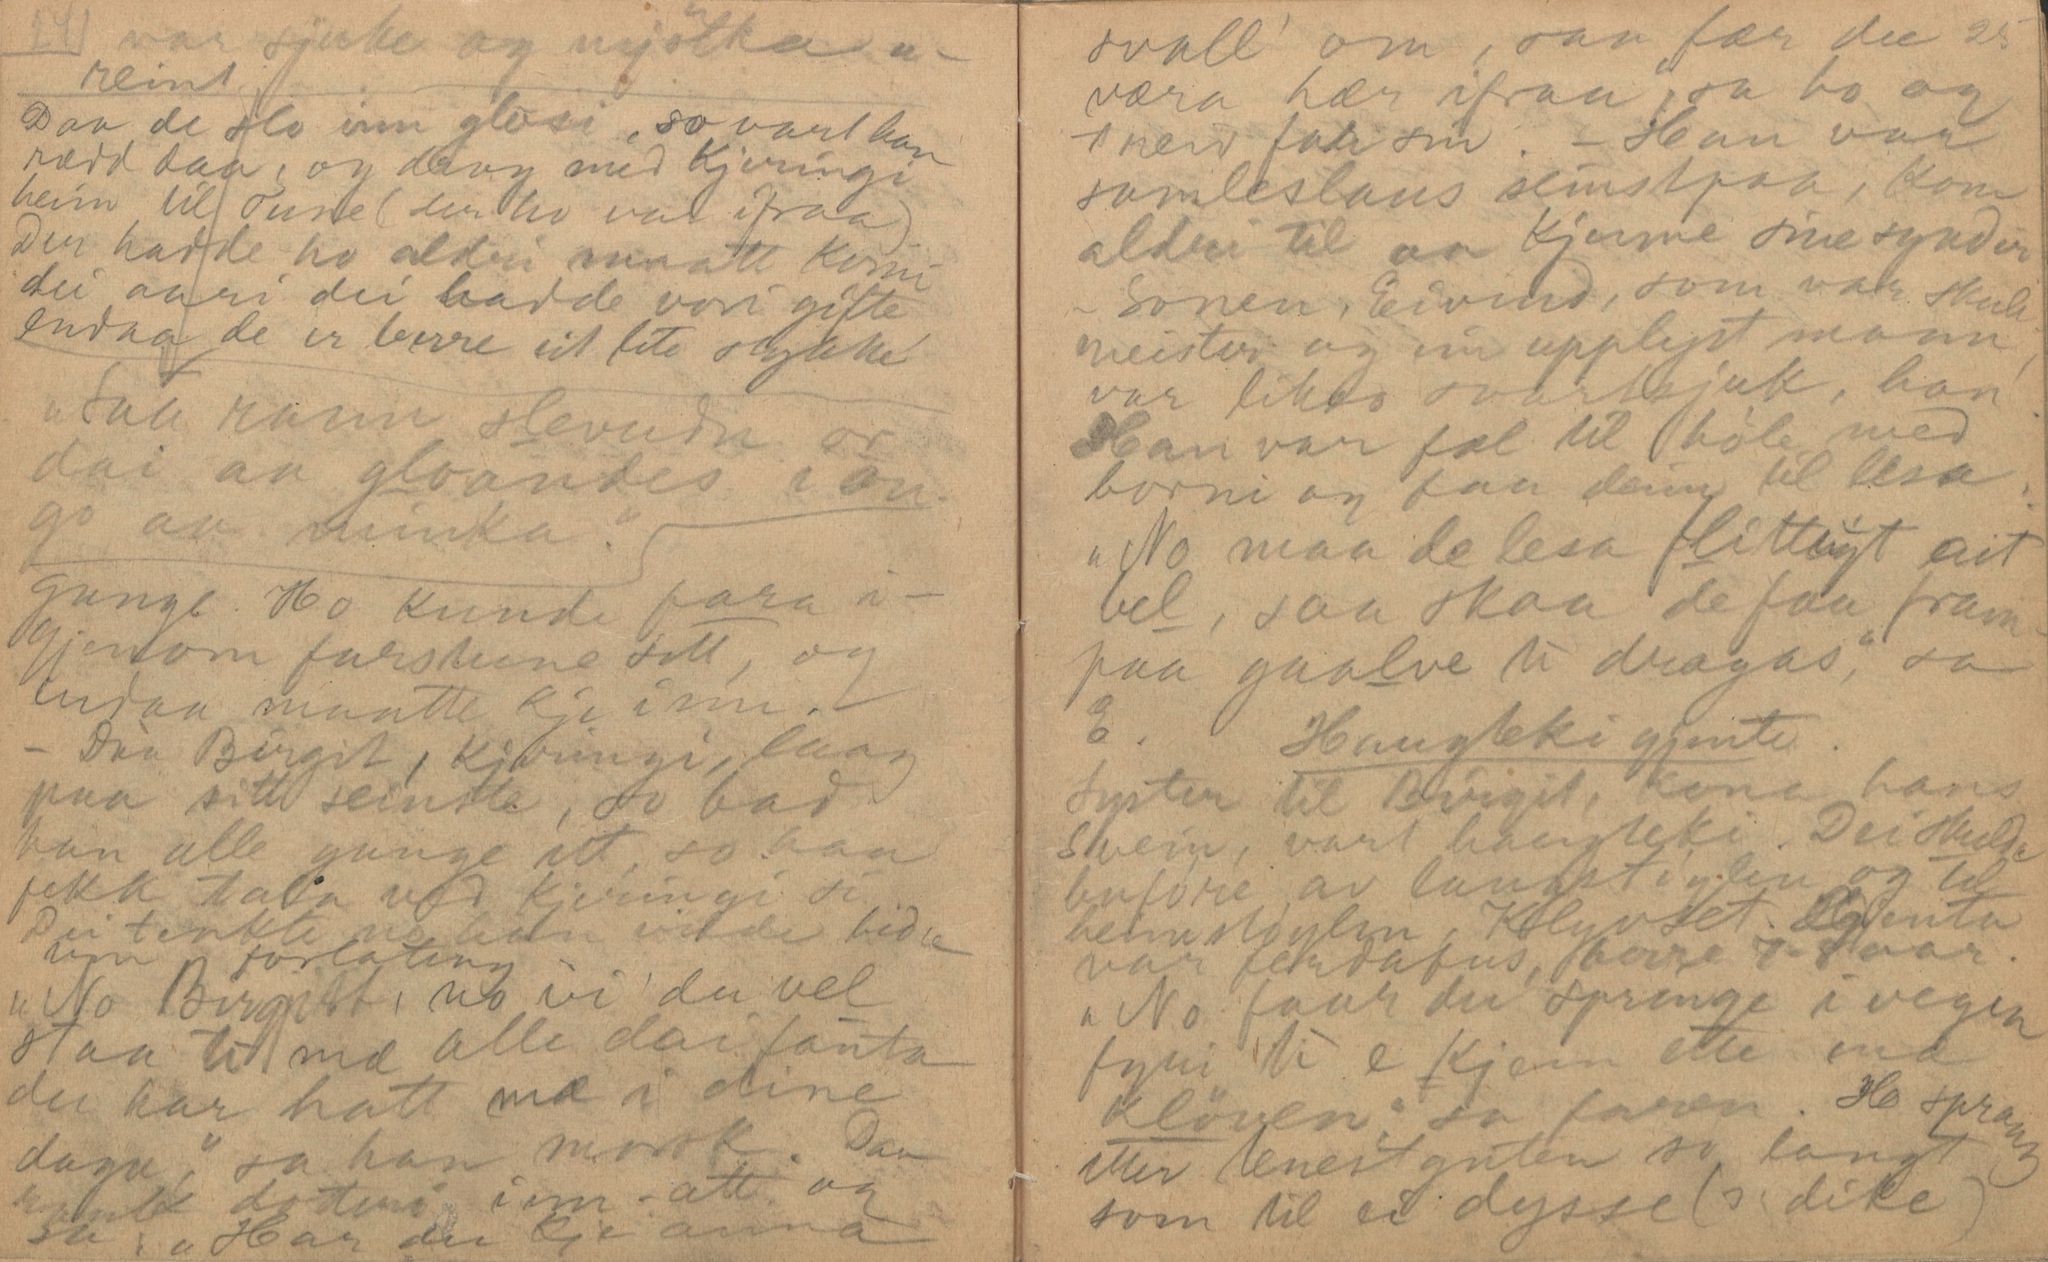 24
var sjuke og mjölka u-
reint.
Daa de slo inn glosi, so vart han
rædd daa, og drog med Kjeringi
heim til Tune (der ho var ifraa)
Der hadde ho aldri maatt komi
dei aari dei hadde vori gifte
endaa de er berre eit lite stykke
"Saa rann slevudn or
dai aa gloandes i ön-
go aa minka."
gange. Ho kunde fara i-
gjenom furstune sitt, og
endaa maatte kje inn.
- Daa Birgit, Kjeringi, laag
paa sitt seinste, so bad
han alle gange ut, so han
fekk tala ved Kjeringi si.
Dei tenkte no han vilde bidia
um forlating
"No Birgit, no vi' du vel
staa til mæ alle dai fanta
du har hatt mæ i dine
daga," sa han morsk. Daa
rauk dotteri inn-att og
sa: "Har du kje anna
25
svall' om, saa fær du
væra hær ifraa", sa ho og
sneid far sin. - Han var
samleslaus seinstpaa, kom
aldri til aa kjenne sine synder
- Sonen, Eivind, som var skule-
meister og ein upplyst mann,
var likso svartsjuk, han.
Han var fæl til höle med
borni og faa deim til lesa.
"No maa de lesa flittugt eit
vel, saa skaa de faa fram-
paa gaalve ti dragas," sa
E.
Haugteki gjente.
Syster til Birgit, kona hans
Svein, vart haugteki. Dei skulde
buføre av langstøylen og til
heimstøylen, Klyvset. Gjenta
var ferdafus, berre var.
"No faar du springe i vegen
fyri ti e kjem ette mæ
klöven", sa faren. Ho sprang
etter tenestguten so langt
som til ei dysse (s: dike)